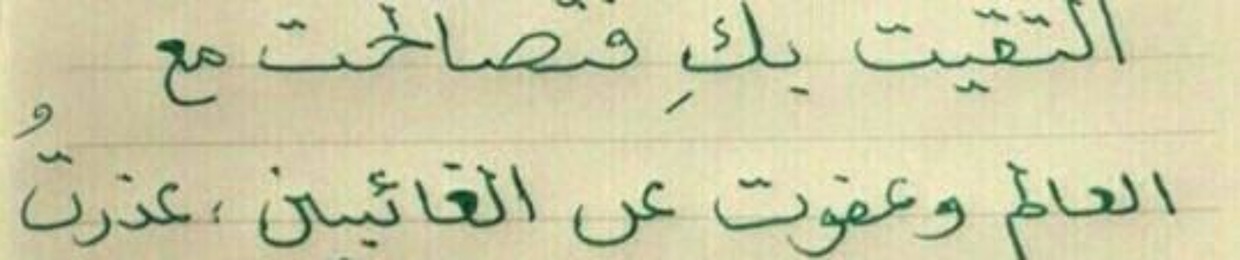 التقيت بكِ فتصالحت مع
العالم وعفوت عن الغائبين ، عذرتُ